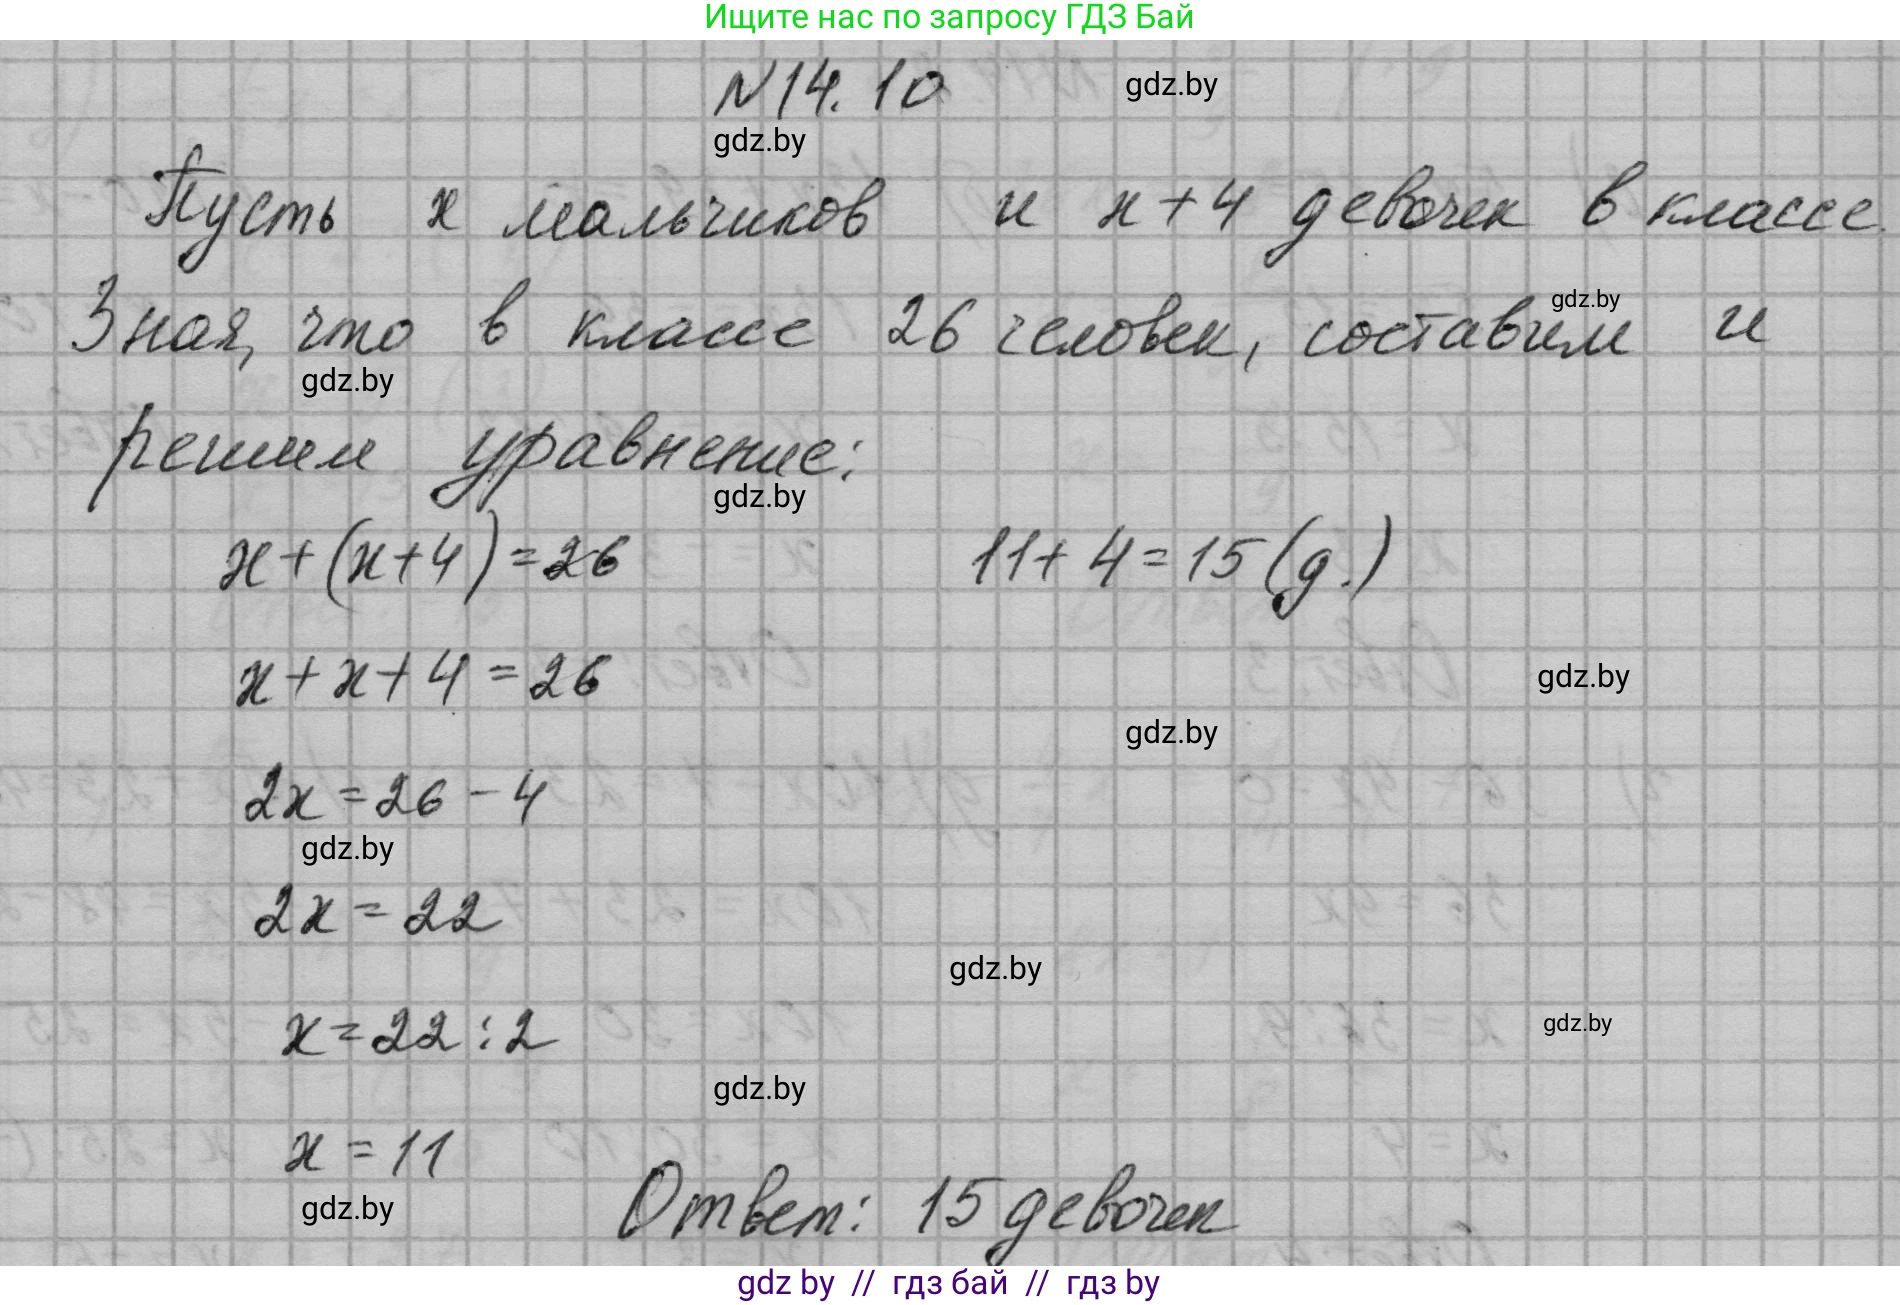 Ищите нас по запросу ГДЗ Бай
N14.10
gdz.by
gdz.by
Пусть x мальчиков и x+4 девочек в классе.
Зная, что в классе 26 человек, составим и
gdz.by
gdz.by
решим уравнение:
gdz.by
x+(x+4)=26 11+4=15(д.)
x+x+4=26
gdz.by
gdz.by
2x=26-4
gdz.by
2x=22
gdz.by
x=22:2
gdz.by
gdz.by
x=11
gdz.by
Ответ: 15 девочек
gdz by // гдз бай // гдз by